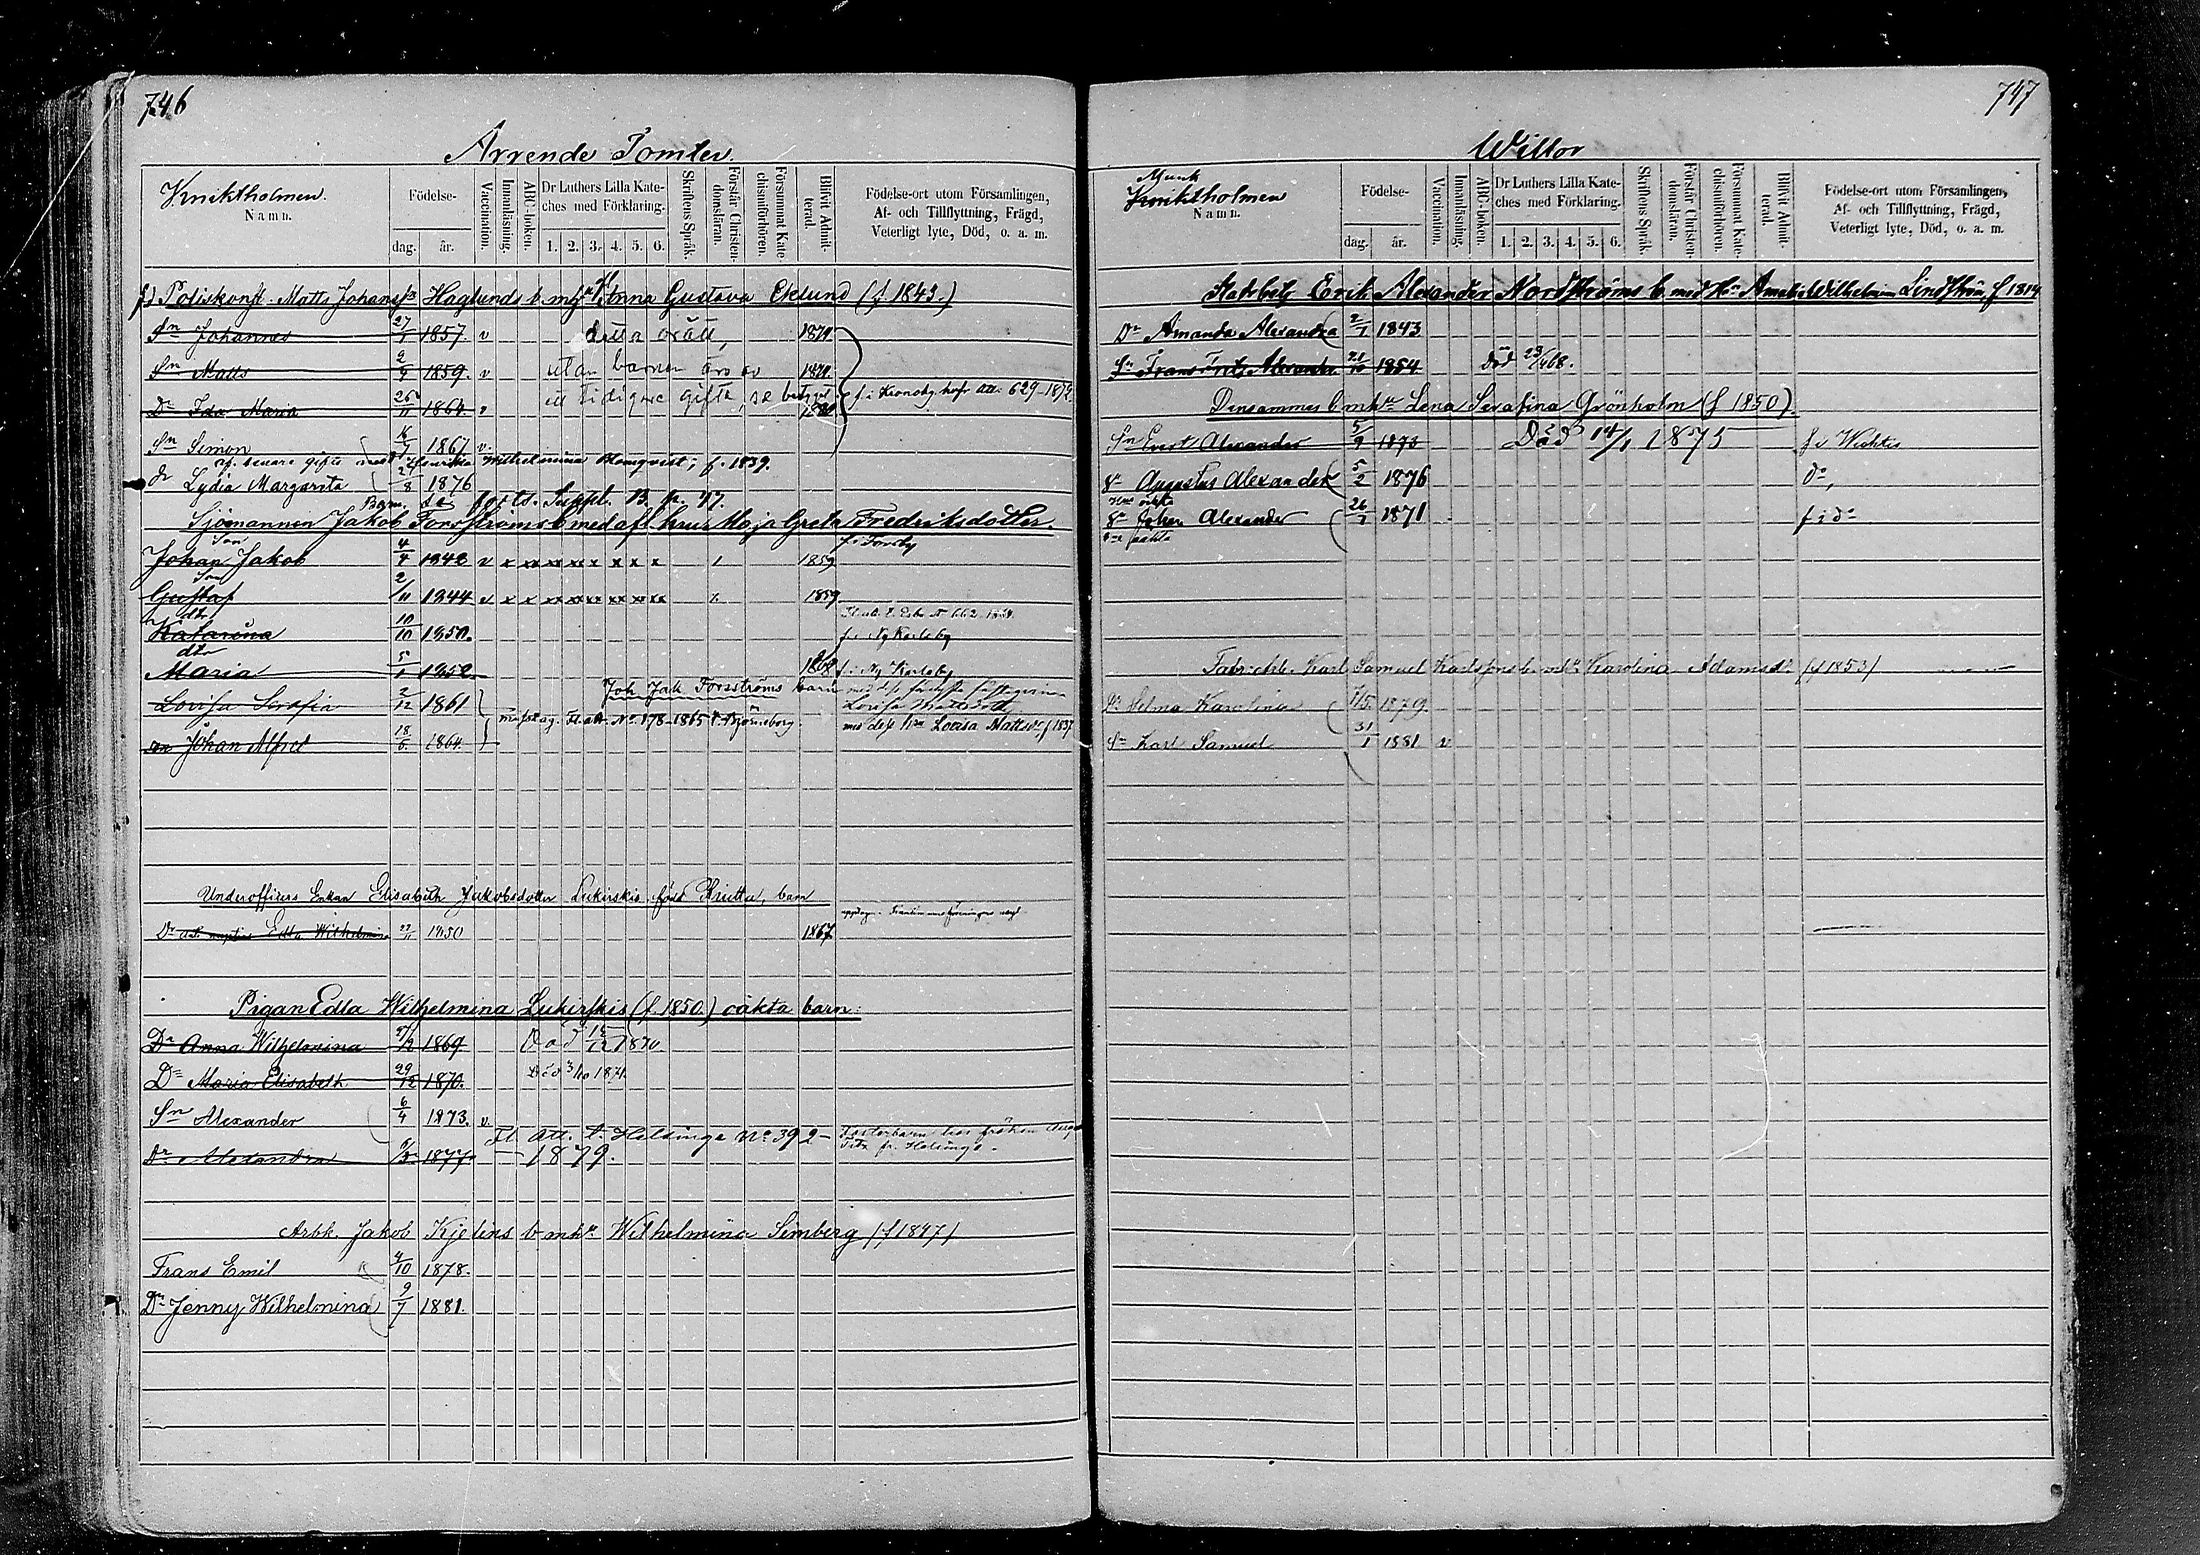 746
Arrende Tomter.
Kniktholmen.
Namn.
Födelse-
dag. år.
Vaccination.
Innanläsning.
ABC-boken.
Dr Luthers Lilla Kate-
ches med Förklaring.
1. 2. 3. 4. 5. 6.
Skriftens Språk.
Förstår Christen-
domsläran.
Försummat Kate-
chismiförhören.
Blifvit Admit-
terad.
Födelse-ort utom Församlingen,
Af- och Tillflyttning, Frägd,
Veterligt lyte, Död, o. a. m.
fd Poliskonst. Matts Johans Haglunds b. m. Anna Gustava Eklund (f 1843.)
Sn Johannes 27/1 1857. v detta orätt, 1874
Sn Matts 2/9 1859. v utan barnen äro av
Dr Ida Maria 26/11 1864. v tidigare gifte, se 1880 f. i Kronoby. Att. 629-1872
Sn Simon 16/7 1867 v.
senare gifte med Henrika Wilhelmina Blomqvist; f. 1839.
dr Lydia Margareta 24/8 1876
Barn, forts. Suppl. B. p. 77.
Sjömannen Jakob Forsströms b med afl. hust Maja Greta Fredriksdotter.
Son f. i Forsby
Johan Jakob 4/4 1842 v x xx xx x x x x 1 1859
Son
Gustaf 2/11 1844 v x x xx xx xx xx 1859
dtr
Katarina 10/10 1850. f. i Ny Karleby
dtr
Maria 5/1 1852 1868 f. i Ny Karleby
Joh. Jak. Forsströms barn
Lovisa Serafia 2/12 1861 Lovisa Mattsdotter
Fl. att. No 178 1865 t. Björneborg. med dess hra Lovisa Mattsdr f 1837
son Johan Alfred 18/6 1864
Underofficers Enkan Elisabeth Jakobsdotter Lukirskis, född Knuttu, barn
Dr Edla Wilhelmina 1850 1867
Pigan Edla Wilhelmina Lukirskis (f 1850.) oäkta barn:
Dr Anna Wilhelmina 1869 Död 15/12 1870
Dr Maria Elisabeth 29/12 1870. Död 3/10 1871.
Sn Alexander 6/4 1873. v.
Fl. att. t. Helsinge No 392- Fosterbarn hos fröken
Dr Alexandra 1877 — 1879. fr. Helsinge.
Arbk. Jakob Kjelins b mhu Wilhelmina Simberg (f 1847)
Frans Emil 4/10 1878.
Dr Jenny Wilhelmina 9/7 1881.
747
Willor
Munk
Kniktholmen
Namn.
Födelse-
dag. år.
Vaccination.
Innanläsning.
ABC-boken.
Dr Luthers Lilla Kate-
ches med Förklaring.
1. 2. 3. 4. 5. 6.
Skriftens Språk.
Förstår Christen-
domsläran.
Försummat Kate-
chismiförhören.
Blifvit Admit-
terad.
Födelse-ort utom Församlingen,
Af- och Tillflyttning, Frägd,
Veterligt lyte, Död, o. a. m.
Eerik Alexander Nordströms b med Hu Amalia Wilhelmina Lindström, f 1814
Dr Amanda Alexandra 2/1 1843
Sn Frans Fritz Alexander 21/10 1854 Död 23/4 68.
Densammes b mhu Lena Serafina Grönholm (f 1850).
Sn Evert Alexander 5/9 1873 Död 14/1 1875 f. i Wichtis
Sn Augustus Alexander 5/2 1876 Do,
Sn Johan Alexander 26/7 1871 f i do
Karl Samuel Karlssons b. mhu Karolina Adamsdr (f 1853)
Dr Selma Karolina 1/5 1879.
Sn Karl Samuel 31/1 1881 v